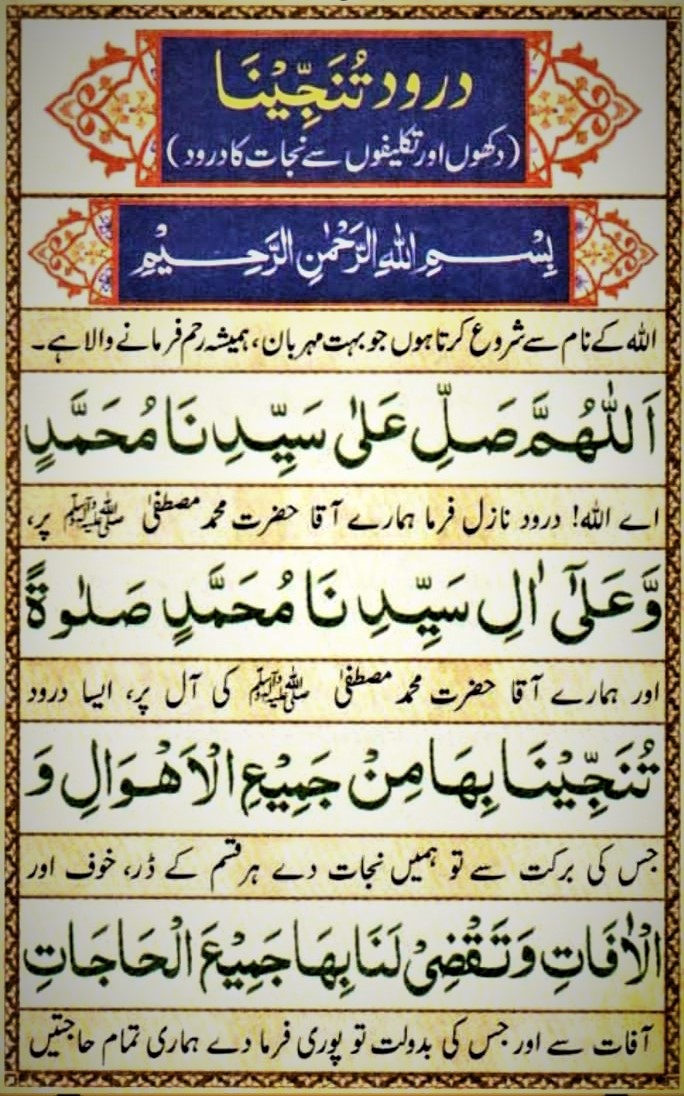 درود تُنَجِّيْنَا
(دکھوں اور تکلیفوں سے نجات کا درود)
بِسْمِ اللهِ الرَّحْمٰنِ الرَّحِيْمِ
اللہ کے نام سے شروع کرتا ہوں جو بہت مہربان، ہمیشہ رحم فرمانے والا ہے۔
اَللّٰهُمَّ صَلِّ عَلٰى سَيِّدِنَا مُحَمَّدٍ
اے اللہ! درود نازل فرما ہمارے آقا حضرت محمد مصطفیٰ ﷺ پر،
وَّعَلٰٓى اٰلِ سَيِّدِنَا مُحَمَّدٍ صَلٰوةً
اور ہمارے آقا حضرت محمد مصطفیٰ ﷺ کی آل پر، ایسا درود
تُنَجِّيْنَا بِهَا مِنْ جَمِيْعِ الْاَهْوَالِ وَ
جس کی برکت سے تو ہمیں نجات دے ہر قسم کے ڈر، خوف اور
الْاٰفَاتِ وَتَقْضِيْ لَنَا بِهَا جَمِيْعَ الْحَاجَاتِ
آفات سے اور جس کی بدولت تو پوری فرما دے ہماری تمام حاجتیں